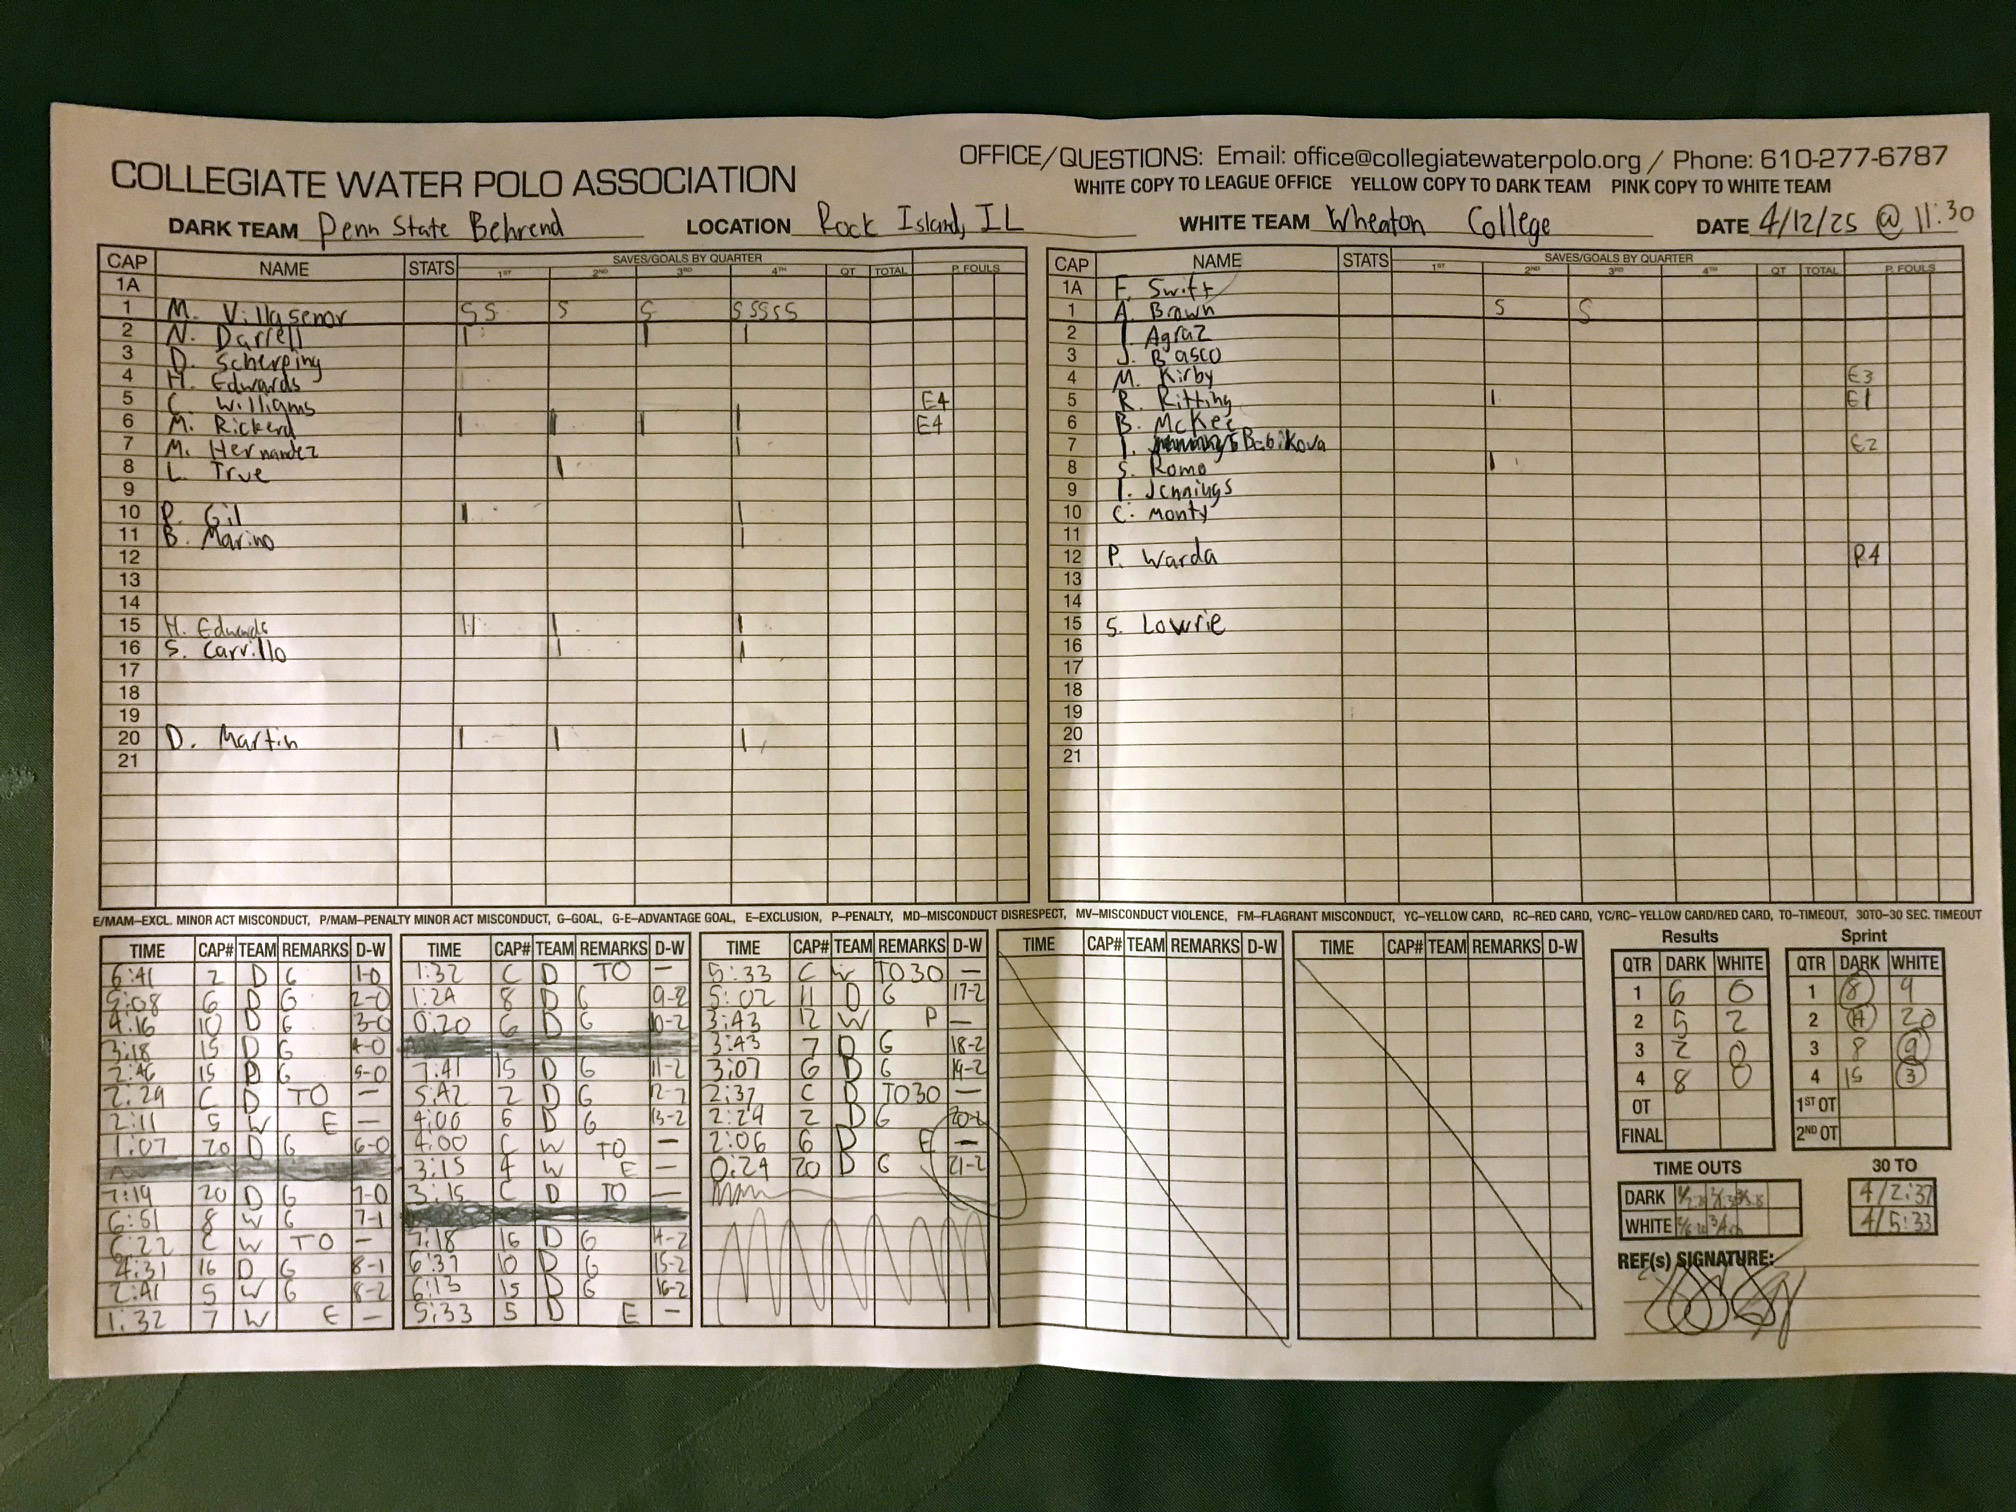 COLLEGIATE WATER POLO ASSOCIATION
OFFICE/QUESTIONS: Email: office@collegiatewaterpolo.org / Phone: 610-277-6787
WHITE COPY TO LEAGUE OFFICE YELLOW COPY TO DARK TEAM PINK COPY TO WHITE TEAM
DARK TEAM Penn State Behrend LOCATION Rock Island, IL WHITE TEAM Wheaton College DATE 4/12/25 @ 11:30
CAP NAME STATS SAVES/GOALS BY QUARTER 1ST 2ND 3RD 4TH QT TOTAL P. FOULS
1A
1 M. Villasenor S S S S S S S S S
2 N. Darrell I I I
3 D. Scherping
4 H. Edwards
5 C. Williams E4
6 M. Rickerd I I I I E4
7 M. Hernandez I
8 L. True I
9
10 P. Gil I I
11 B. Marino I
12
13
14
15 H. Edwards I I I I
16 S. Carrillo I I
17
18
19
20 D. Martin I I I
21
CAP NAME STATS SAVES/GOALS BY QUARTER 1ST 2ND 3RD 4TH QT TOTAL P. FOULS
1A F. Swift
1 A. Brown S S
2 I. Agraz
3 J. Basco
4 M. Kirby E3
5 R. Ritting I E1
6 B. McKee
7 I. Babikova E2
8 S. Romo I
9 I. Jennings
10 C. Monty
11
12 P. Warda P4
13
14
15 S. Lowrie
16
17
18
19
20
21
E/MAM–EXCL. MINOR ACT MISCONDUCT, P/MAM–PENALTY MINOR ACT MISCONDUCT, G–GOAL, G-E–ADVANTAGE GOAL, E–EXCLUSION, P–PENALTY, MD–MISCONDUCT DISRESPECT, MV–MISCONDUCT VIOLENCE, FM–FLAGRANT MISCONDUCT, YC–YELLOW CARD, RC–RED CARD, YC/RC–YELLOW CARD/RED CARD, TO–TIMEOUT, 30TO–30 SEC. TIMEOUT
TIME CAP# TEAM REMARKS D-W
6:41 2 D G 1-0
5:08 6 D G 2-0
4:16 10 D G 3-0
3:18 15 D G 4-0
2:46 15 D G 5-0
2:29 C D TO —
2:11 5 W E —
1:07 20 D G 6-0
7:19 20 D G 7-0
6:51 8 W G 7-1
6:22 C W TO —
4:31 16 D G 8-1
2:41 5 W G 8-2
1:32 7 W E —
TIME CAP# TEAM REMARKS D-W
1:32 C D TO —
1:24 8 D G 9-2
0:20 6 D G 10-2
7:41 15 D G 11-2
5:42 2 D G 12-2
4:06 6 D G 13-2
4:00 C W TO —
3:15 4 W E —
3:15 C D TO —
7:18 16 D G 14-2
6:37 10 D G 15-2
6:13 15 D G 16-2
5:33 5 D E —
TIME CAP# TEAM REMARKS D-W
5:33 C W TO30 —
5:02 11 D G 17-2
3:43 12 W P —
3:43 7 D G 18-2
3:07 6 D G 19-2
2:37 C D TO30 —
2:29 2 D G 20-2
2:06 6 D E —
0:24 20 D G 21-2
TIME CAP# TEAM REMARKS D-W
TIME CAP# TEAM REMARKS D-W
Results
QTR DARK WHITE
1 6 0
2 5 2
3 2 0
4 8 0
OT
FINAL
Sprint
QTR DARK WHITE
1 8 9
2 20
3 8 9
4 15 3
1ST OT
2ND OT
TIME OUTS
DARK
WHITE
30 TO
4/2:37
4/5:33
REF(s) SIGNATURE: